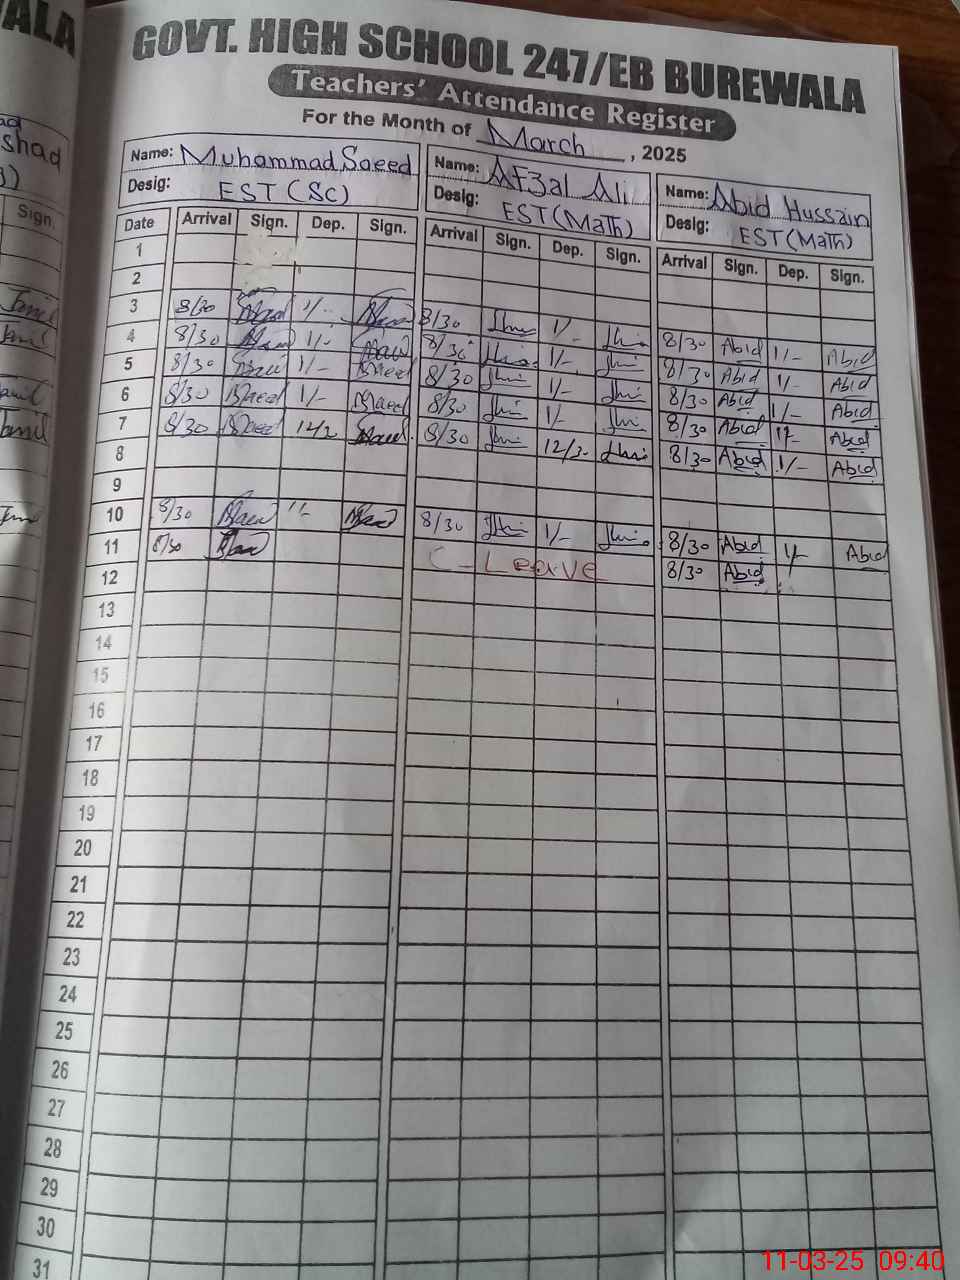 WALA
GOVT. HIGH SCHOOL 247/EB BUREWALA
Teachers' Attendance Register
For the Month of March, 2025
shad
Sign.
Name: Muhammad Saeed Name: Afzal Ali Name: Abid Hussain
Desig: EST (SC) Desig: EST (Math) Desig: EST (Math)
Date Arrival Sign. Dep. Sign. Arrival Sign. Dep. Sign. Arrival Sign. Dep. Sign.
1
2
3 8/30 1/- 8/30 1/- 8/30 Abid 1/- Abid
4 8/30 1/- 8/30 1/- 8/30 Abid 1/- Abid
5 8/30 Saeed 1/- Saeed 8/30 1/- 8/30 Abid 1/- Abid
6 8/30 Saeed 1/- Saeed 8/30 1/- 8/30 Abid 1/- Abid
7 8/30 Saeed 8/30 12/30 8/30 Abid 1/- Abid
8
9
10 8/30 8/30 1/- 8/30 Abid 1/- Abid
11 8/30 C-Leave 8/30 Abid
12
13
14
15
16
17
18
19
20
21
22
23
24
25
26
27
28
29
30
31
11-03-25 09:40